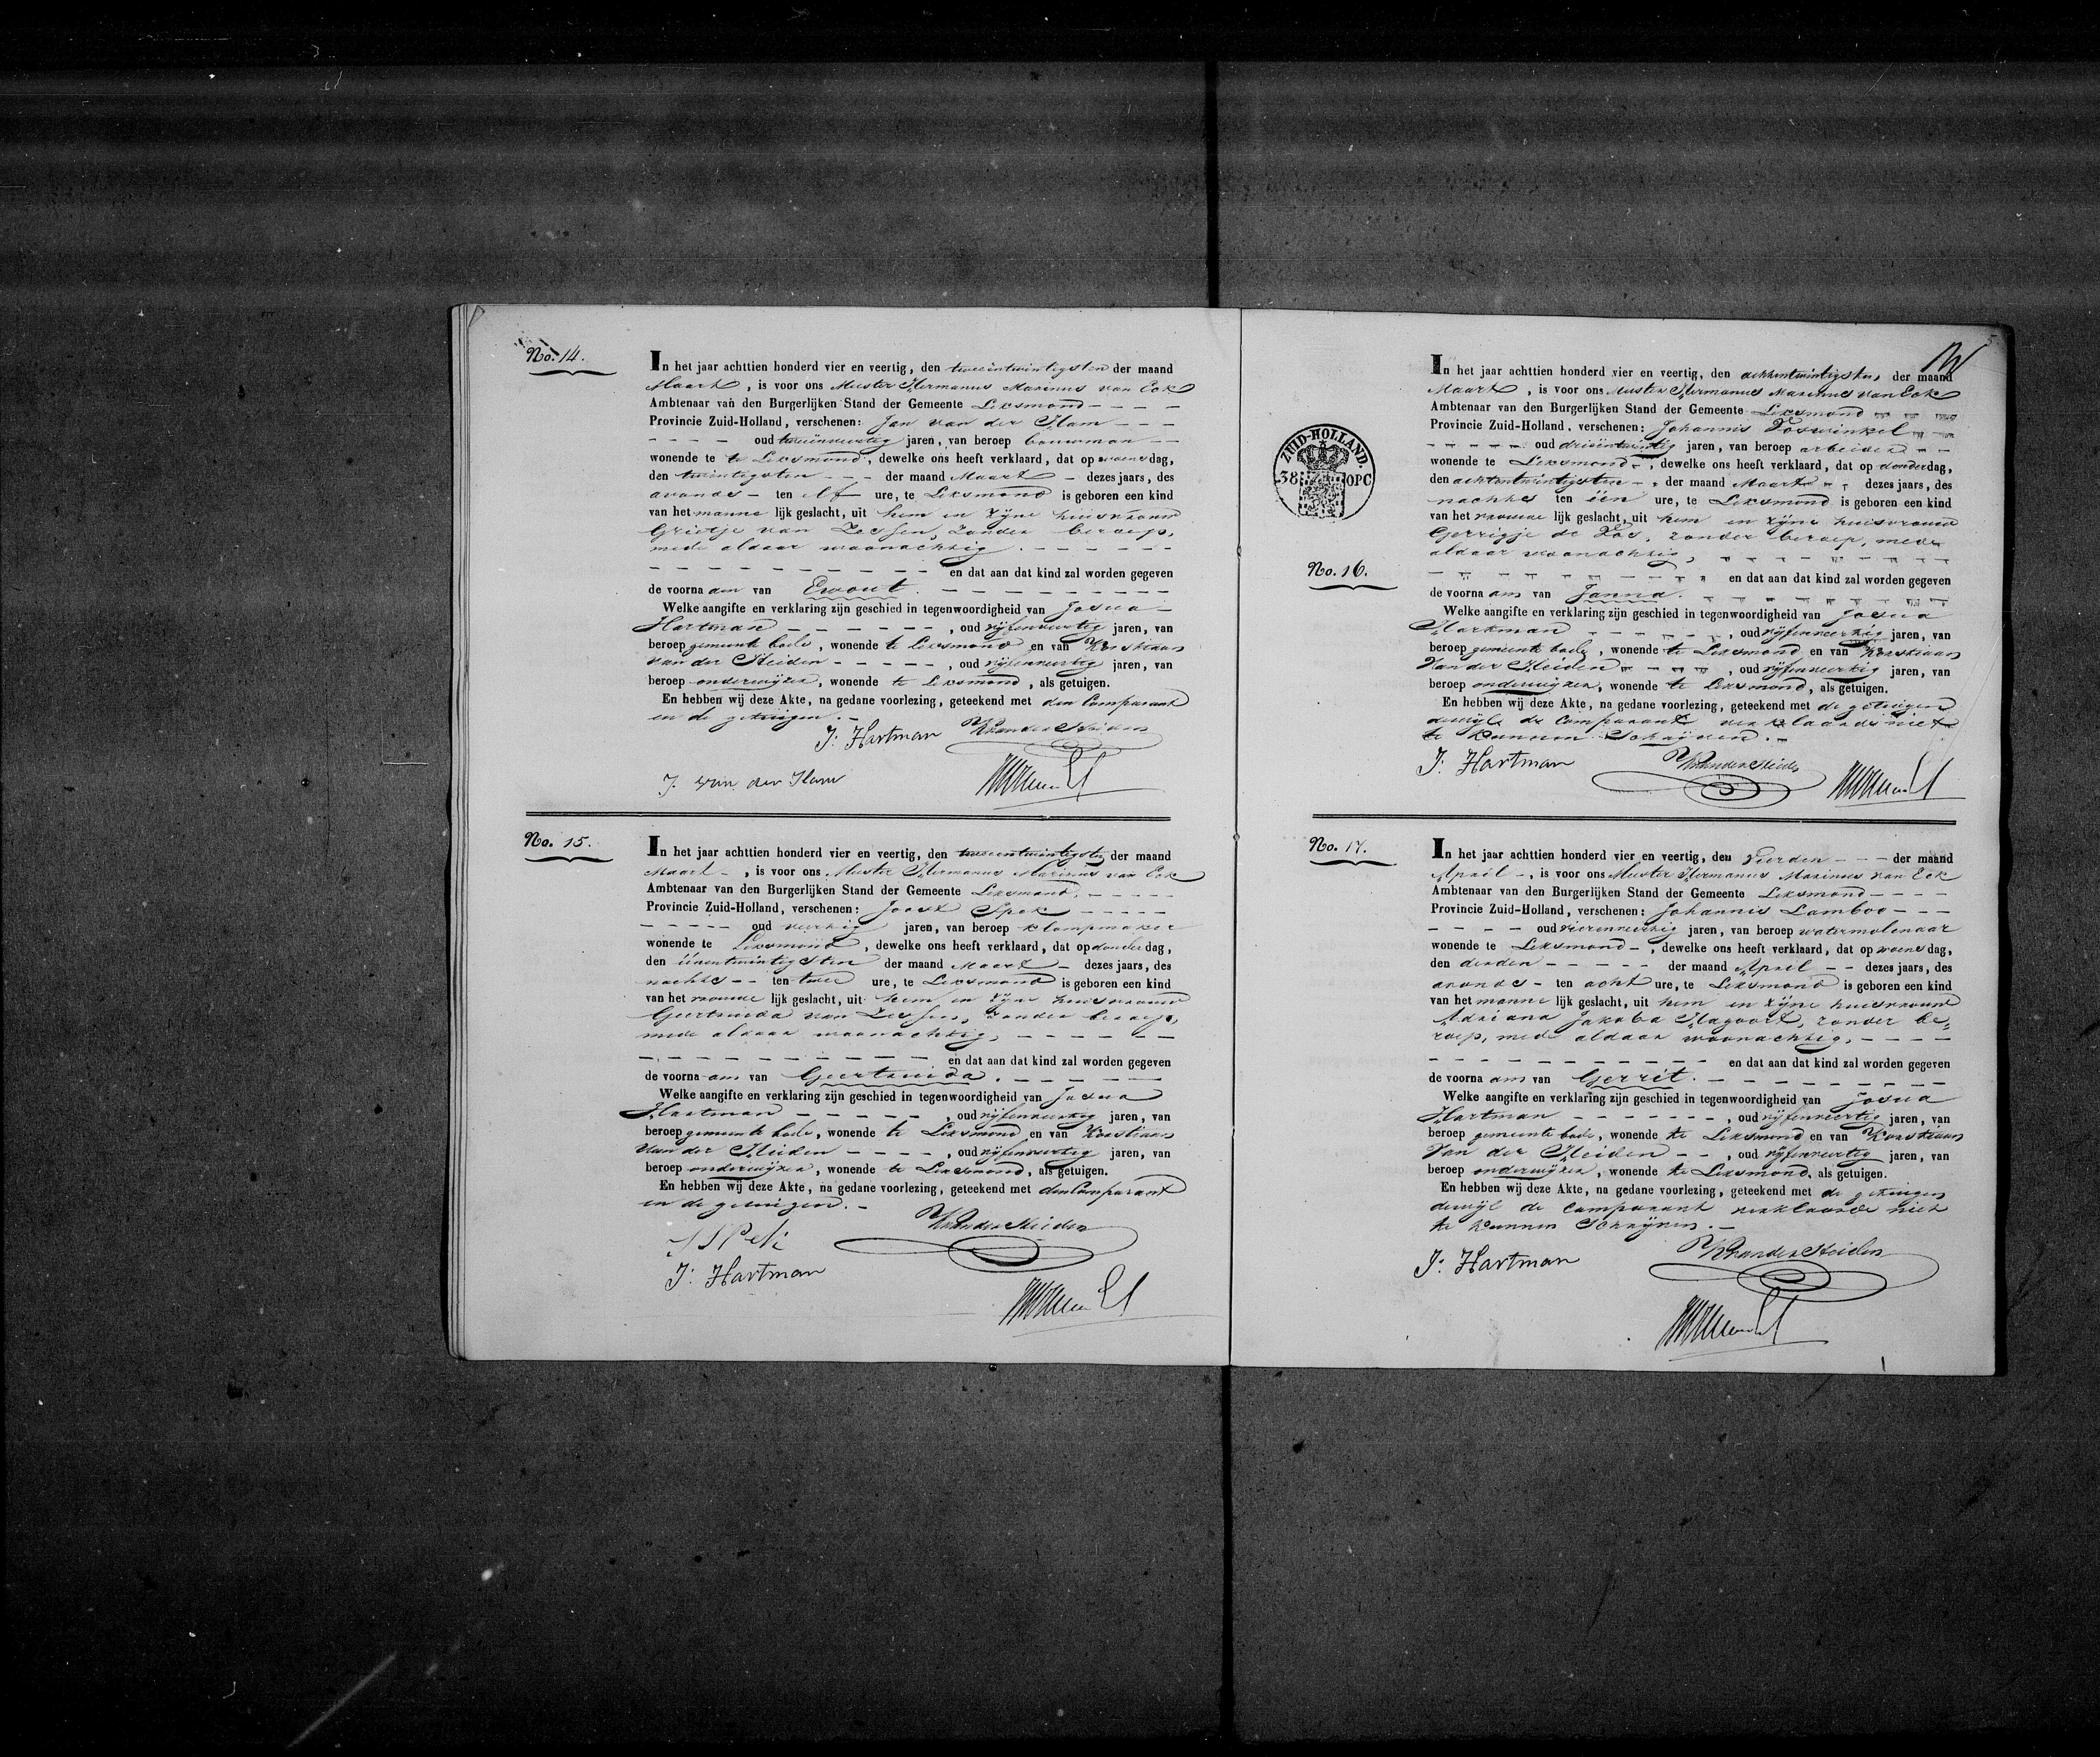 No. 14.
In het jaar achttien honderd vier en veertig, den tweeentwintigsten der maand
Maart, is voor ons Meester Hermanus Marinus van Eck
Ambtenaar van den Burgerlijken Stand der Gemeente Leksmond
Provincie Zuid-Holland, verschenen: Jan van der Ham
oud jaren, van beroep bouwman
wonende te te Leksmond, dewelke ons heeft verklaard, dat op woensdag,
den twintigsten der maand Maart dezes jaars, des
avonds ten elf ure, te Leksmond is geboren een kind
van het mannelijk geslacht, uit hem en zijne huisvrouw
Grietje van Zessen, zonder beroep,
mede aldaar woonachtig.
en dat aan dat kind zal worden gegeven
de voornaam van Ewout.
Welke aangifte en verklaring zijn geschied in tegenwoordigheid van Josua
Hartman, oud vijfenveertig jaren, van
beroep gemeente bode, wonende te Leksmond en van Korstiaan
van der Heiden, oud vijfenveertig jaren, van
beroep onderwijzer, wonende te Leksmond, als getuigen.
En hebben wij deze Akte, na gedane voorlezing, geteekend met den Comparant
en de getuigen.
J: Hartman K van der Heiden
J. van der Ham
No. 15.
In het jaar achttien honderd vier en veertig, den tweeentwintigsten der maand
Maart, is voor ons Meester Hermanus Marinus van Eck
Ambtenaar van den Burgerlijken Stand der Gemeente Leksmond,
Provincie Zuid-Holland, verschenen: Joost Spek
oud veertig jaren, van beroep klompmaker
wonende te Leksmond, dewelke ons heeft verklaard, dat op donderdag,
den éénentwintigsten der maand Maart dezes jaars, des
nachts ten twee ure, te Leksmond is geboren een kind
van het vrouwelijk geslacht, uit hem en zijne huisvrouw
Geertruida van Zessen, zonder beroep,
mede aldaar woonachtig,
en dat aan dat kind zal worden gegeven
de voornaam van Geertruida.
Welke aangifte en verklaring zijn geschied in tegenwoordigheid van Josua
Hartman, oud vijfenveertig jaren, van
beroep gemeente bode, wonende te Leksmond en van Korstiaan
van der Heiden, oud vijfenveertig jaren, van
beroep onderwijzer, wonende te Leksmond, als getuigen.
En hebben wij deze Akte, na gedane voorlezing, geteekend met den Comparant
en de getuigen.
K van der Heiden
J Spek
J: Hartman
ZUID-HOLLAND.
38 OPC
No. 16.
In het jaar achttien honderd vier en veertig, den achtentwintigsten der maand
Maart, is voor ons Meester Hermanus Marinus van Eck
Ambtenaar van den Burgerlijken Stand der Gemeente Leksmond
Provincie Zuid-Holland, verschenen: Johannis Voswinkel
oud drieëntwintig jaren, van beroep arbeider
wonende te Leksmond, dewelke ons heeft verklaard, dat op donderdag,
den achtentwintigsten der maand Maart dezes jaars, des
nachts ten één ure, te Leksmond is geboren een kind
van het vrouwelijk geslacht, uit hem en zijne huisvrouw
Gerrigje de Vos, zonder beroep, mede
aldaar woonachtig,
en dat aan dat kind zal worden gegeven
de voornaam van Janna.
Welke aangifte en verklaring zijn geschied in tegenwoordigheid van Josua
Hartman, oud vijfenveertig jaren, van
beroep gemeente bode, wonende te Leksmond en van Korstiaan
van der Heiden, oud vijfenveertig jaren, van
beroep onderwijzer, wonende te Leksmond, als getuigen.
En hebben wij deze Akte, na gedane voorlezing, geteekend met de getuigen
dewijl de Comparant verklaarde niet
te kunnen schrijven.
J: Hartman K van der Heiden
No. 17.
In het jaar achttien honderd vier en veertig, den vierden der maand
April, is voor ons Meester Hermanus Marinus van Eck
Ambtenaar van den Burgerlijken Stand der Gemeente Leksmond
Provincie Zuid-Holland, verschenen: Johannis Lamboo
oud vierenveertig jaren, van beroep watermolenaar
wonende te Leksmond, dewelke ons heeft verklaard, dat op woensdag,
den derden der maand April dezes jaars, des
avonds ten acht ure, te Leksmond is geboren een kind
van het mannelijk geslacht, uit hem en zijne huisvrouw
Adriana Jakoba Hagoort, zonder be=
roep, mede aldaar woonachtig,
en dat aan dat kind zal worden gegeven
de voornaam van Gerrit.
Welke aangifte en verklaring zijn geschied in tegenwoordigheid van Josua
Hartman, oud vijfenveertig jaren, van
beroep gemeente bode, wonende te Leksmond en van Korstiaan
van der Heiden, oud vijfenveertig jaren, van
beroep onderwijzer, wonende te Leksmond, als getuigen.
En hebben wij deze Akte, na gedane voorlezing, geteekend met de getuigen
dewijl de Comparant verklaarde niet
te kunnen schrijven.
J: Hartman K van der Heiden